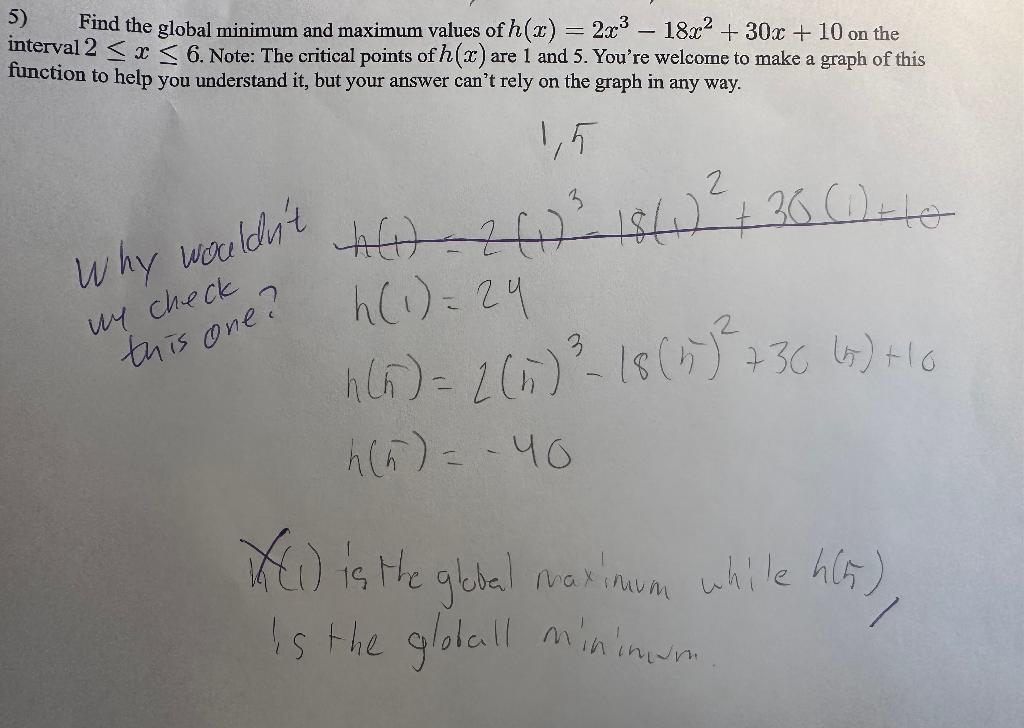 5) Find the global minimum and maximum values of h(x) = 2x³ − 18x² + 30x + 10 on the
interval 2 ≤ x ≤ 6. Note: The critical points of h(x) are 1 and 5. You're welcome to make a graph of this
function to help you understand it, but your answer can't rely on the graph in any way.
1,5
h(1) = 2(1)³ - 18(1)² + 30(1) + 10
Why wouldn't
we check
this one?
h(1) = 24
h(5) = 2(5)³ - 18(5)² + 30(5) + 10
h(5) = -40
h(1) is the global maximum while h(5)
is the globall minimum.